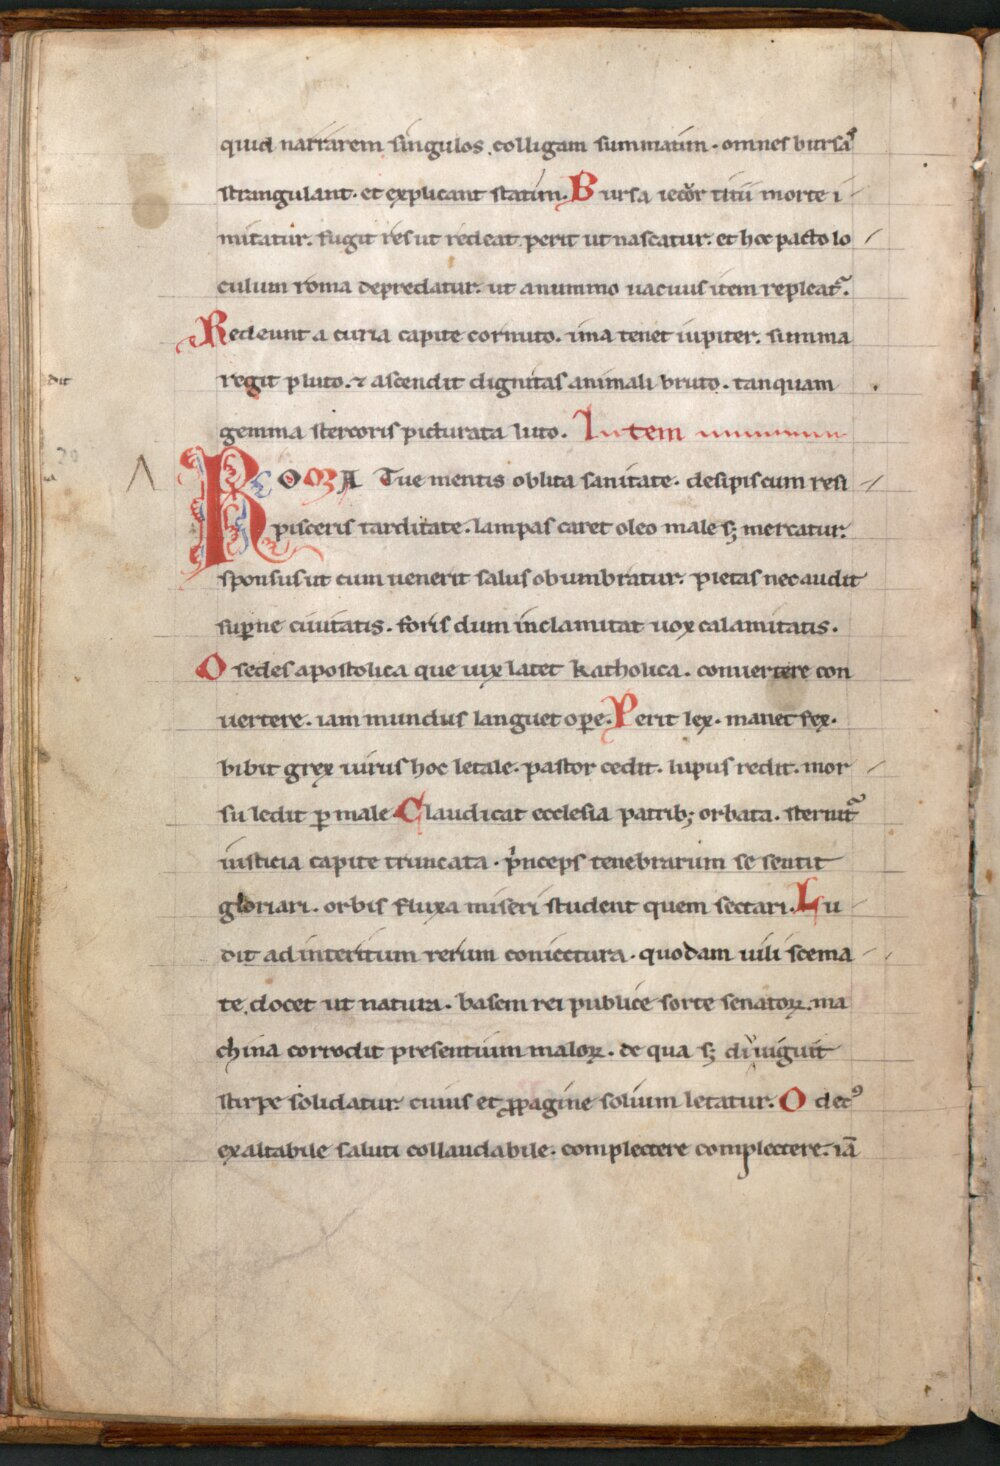 quid narrarem singulos colligam summatim. omnes bursas
strangulant. et explicant statim. Bursa iecor titii morte i
mitatur. fugit res ut redeat. perit ut nascatur. et hoc pacto lo
culum roma depredatur. ut a nummo vacuus item repleat᷑.
Redeunt a curia capite cornuto. ima tenet iupiter. summa
regit pluto. ⁊ ascendit dignitas animali bruto. tanquam
gemma stercoris picturata luto. Intem
ROMA Tue mentis oblita sanitate. desipis cum resi
pisceris tarditate. lampas caret oleo male sꝫ mercatur.
sponsus ut cum uenerit salus obumbratur. pietas nec audit
suꝑne ciuitatis. foris dum inclamitat uox calamitatis.
O sedes apostolica que uix latet katholica. conuertere con
uertere. iam mundus languet oꝑe. Perit lex. manet fex.
bibit grex uirus hoc letale. pastor cedit. lupus redit. mor
su ledit ꝑ male. Claudicat ecclesia patribꝫ orbata. sternit᷑
iusticia capite truncata. pͥnceps tenebrarum se sentit
gloriari. orbis fluxa miseri student quem sectari. Lu
dit ad interitum rerum coniectura. quodam uili scema
te docet ut natura. basem rei publice sorte senatoꝝ. ma
china corrodit presentium maloꝝ. de qua sꝫ uiguit
stirpe solidatur. cuius et ꝓpagine solium letatur. O decꝰ
exaltabile saluti collaudabile. complectere complectere. iā
dit